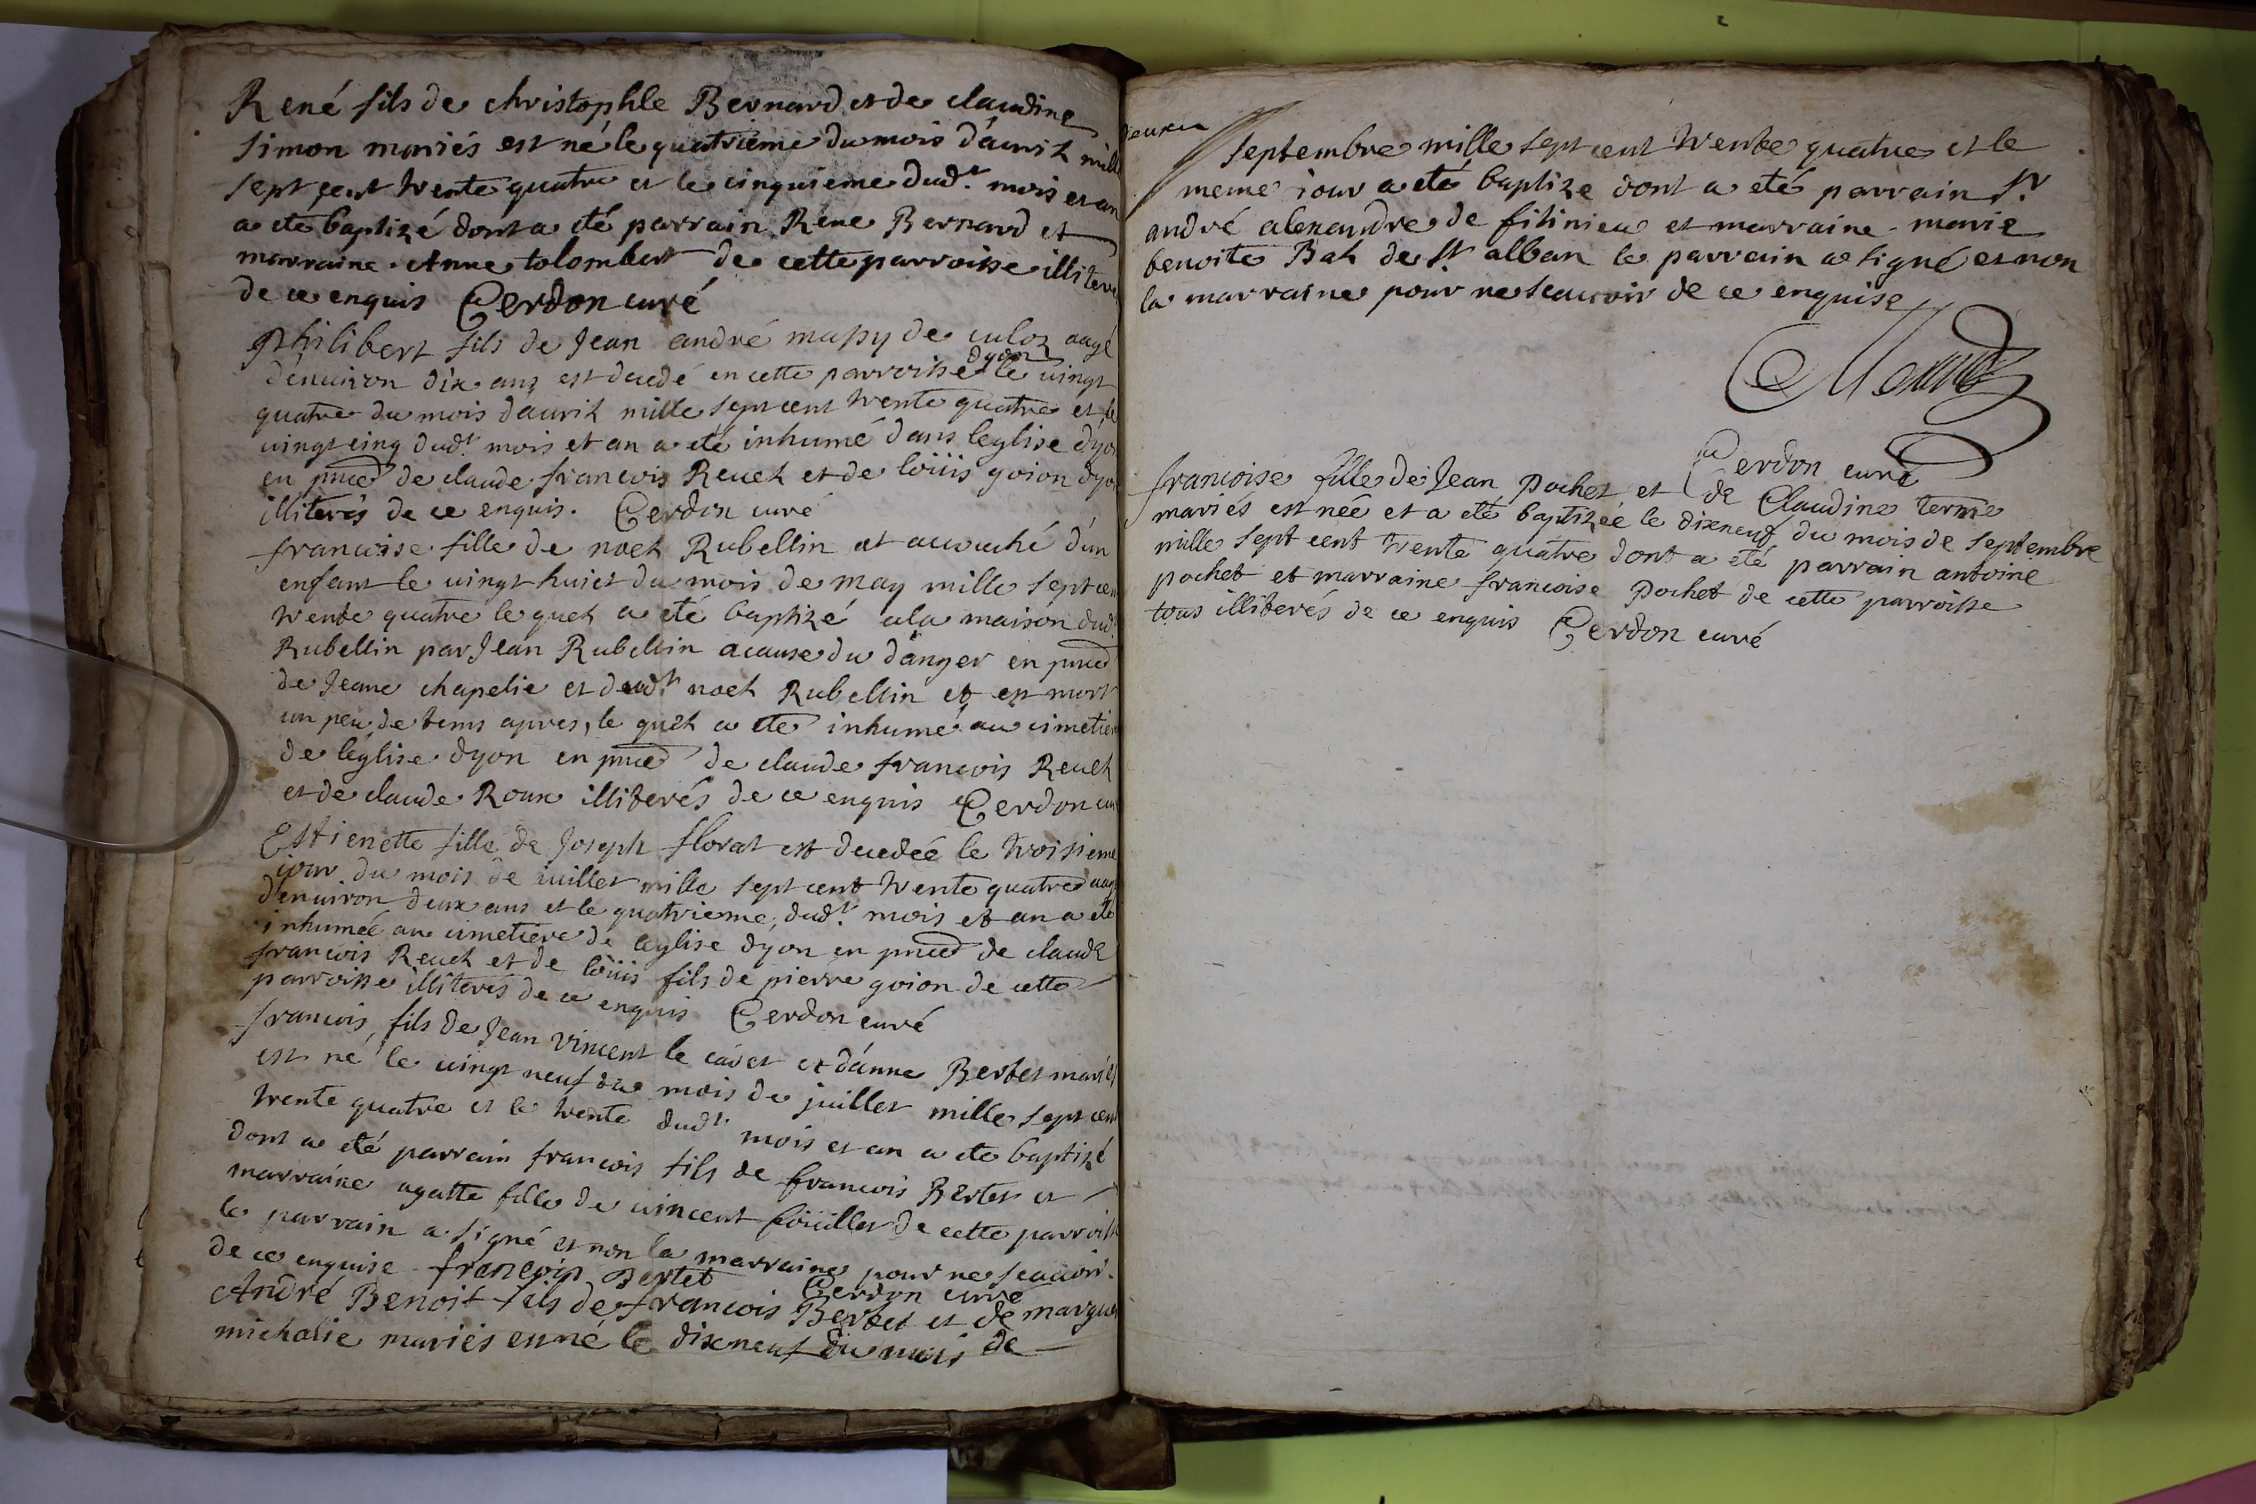 René fils de christophle Bernard et de claudine
simon mariés est né le quatriéme du mois d'auril mill
sept cent trente quatre et le cinquieme dud.t mois et an
a eté baptizé dont a eté parrain René Bernard et
marraine Anne tolombert de cette parroisse illiteré
de ce enquis Cerdon curé
Philibert fils de Jean andré massy de culoz aagé
d'enuiron dix ans est decedé en cette parroisse dyon le uingt
quatre du mois dauril mille sept cent trente quatre et le
uingt cinq dud.t mois et an a eté inhumé dans leglise dyon
en pnce de claude francois Reuel et de loüis goion dyon
illiterés de ce enquis. Cerdon curé
francoise fille de noel Rubellin at accouché d'un
enfant le uingt huict du mois de may mille sept cen
trente quatre le quel a eté baptizé a la maison dud.
Rubellin par Jean Rubellin a cause du danger en pnce
de Jeane chapelie et dud.t noel Rubellin et est mort
un peu de tems apres, le quel a eté inhumé au cimetier
de l'église dyon en pnce de claude francois Reuel
et de claude Roux illiterés de ce enquis Cerdon cu
Estienette fille de Joseph florat est decedeé le troisieme
jour du mois de iuillet mille sept cent trente quatre aag
d'enuiron deux ans et le quatrieme dud.t mois et an a eté
inhumeé au cimetiere de leglise dyon en pnce de claude
francois Reuel et de loüis fils de pierre goion de cette
parroisse illiterés de ce enquis Cerdon curé
francois fils de Jean vincent le cadet et d'anne Bertet mariés
est né le uingt neuf du mois de juillet mille sept cen
trente quatre et le trente dud.t mois et an a eté baptizé
dont a eté parrain francois fils de francois Bertet et
marraine agatte fille de uincent de cette parroiss
le parrain a signé et non la marraine pour ne scauoir
de ce enquise francois Bertet Cerdon curé
André Benoit fils de francois Bertet et de margue
michalie mariés est né le dixneuf du mois de
septembre mille sept cent trente quatre et le
meme iour a eté baptize dont a eté parrain Sr.
andré alexandre de fitinieu et marraine marie
benoite Bal de St alban le parrain a signé et non
la marraine pour ne scauoir de ce enquise
Cerdon curé
francoise fille de Jean Pochet et de Claudine terme
mariés est née et a eté baptizée le dixneuf du mois de septembre
mille sept cent trente quatre dont a eté parrain antoine
pochet et marraine francoise Pochet de cette parroisse
tous illiterés de ce enquis Cerdon curé